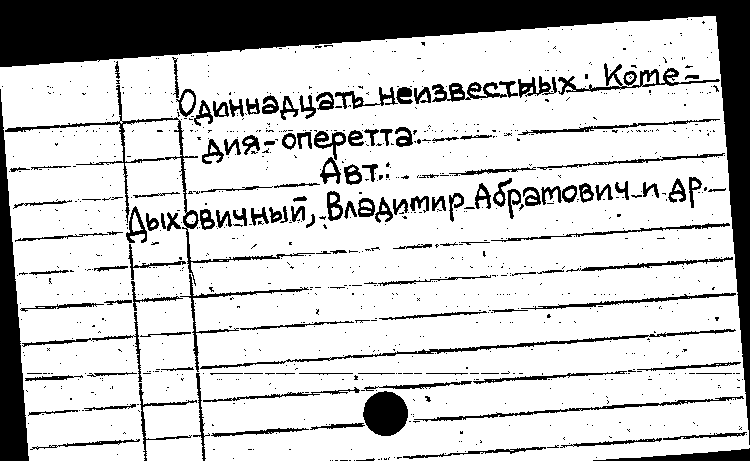 Одиннадцать неизвестных: Коме-
дия-оперетта.
Авт.:
Дыховичный, Владимир Абрамович и др.